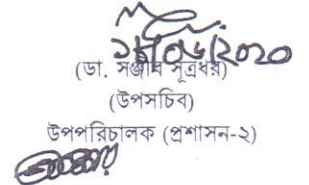 (ডা. সঞ্জীব সূত্রধর)
(উপসচিব)
উপপরিচালক (প্রশাসন-২)